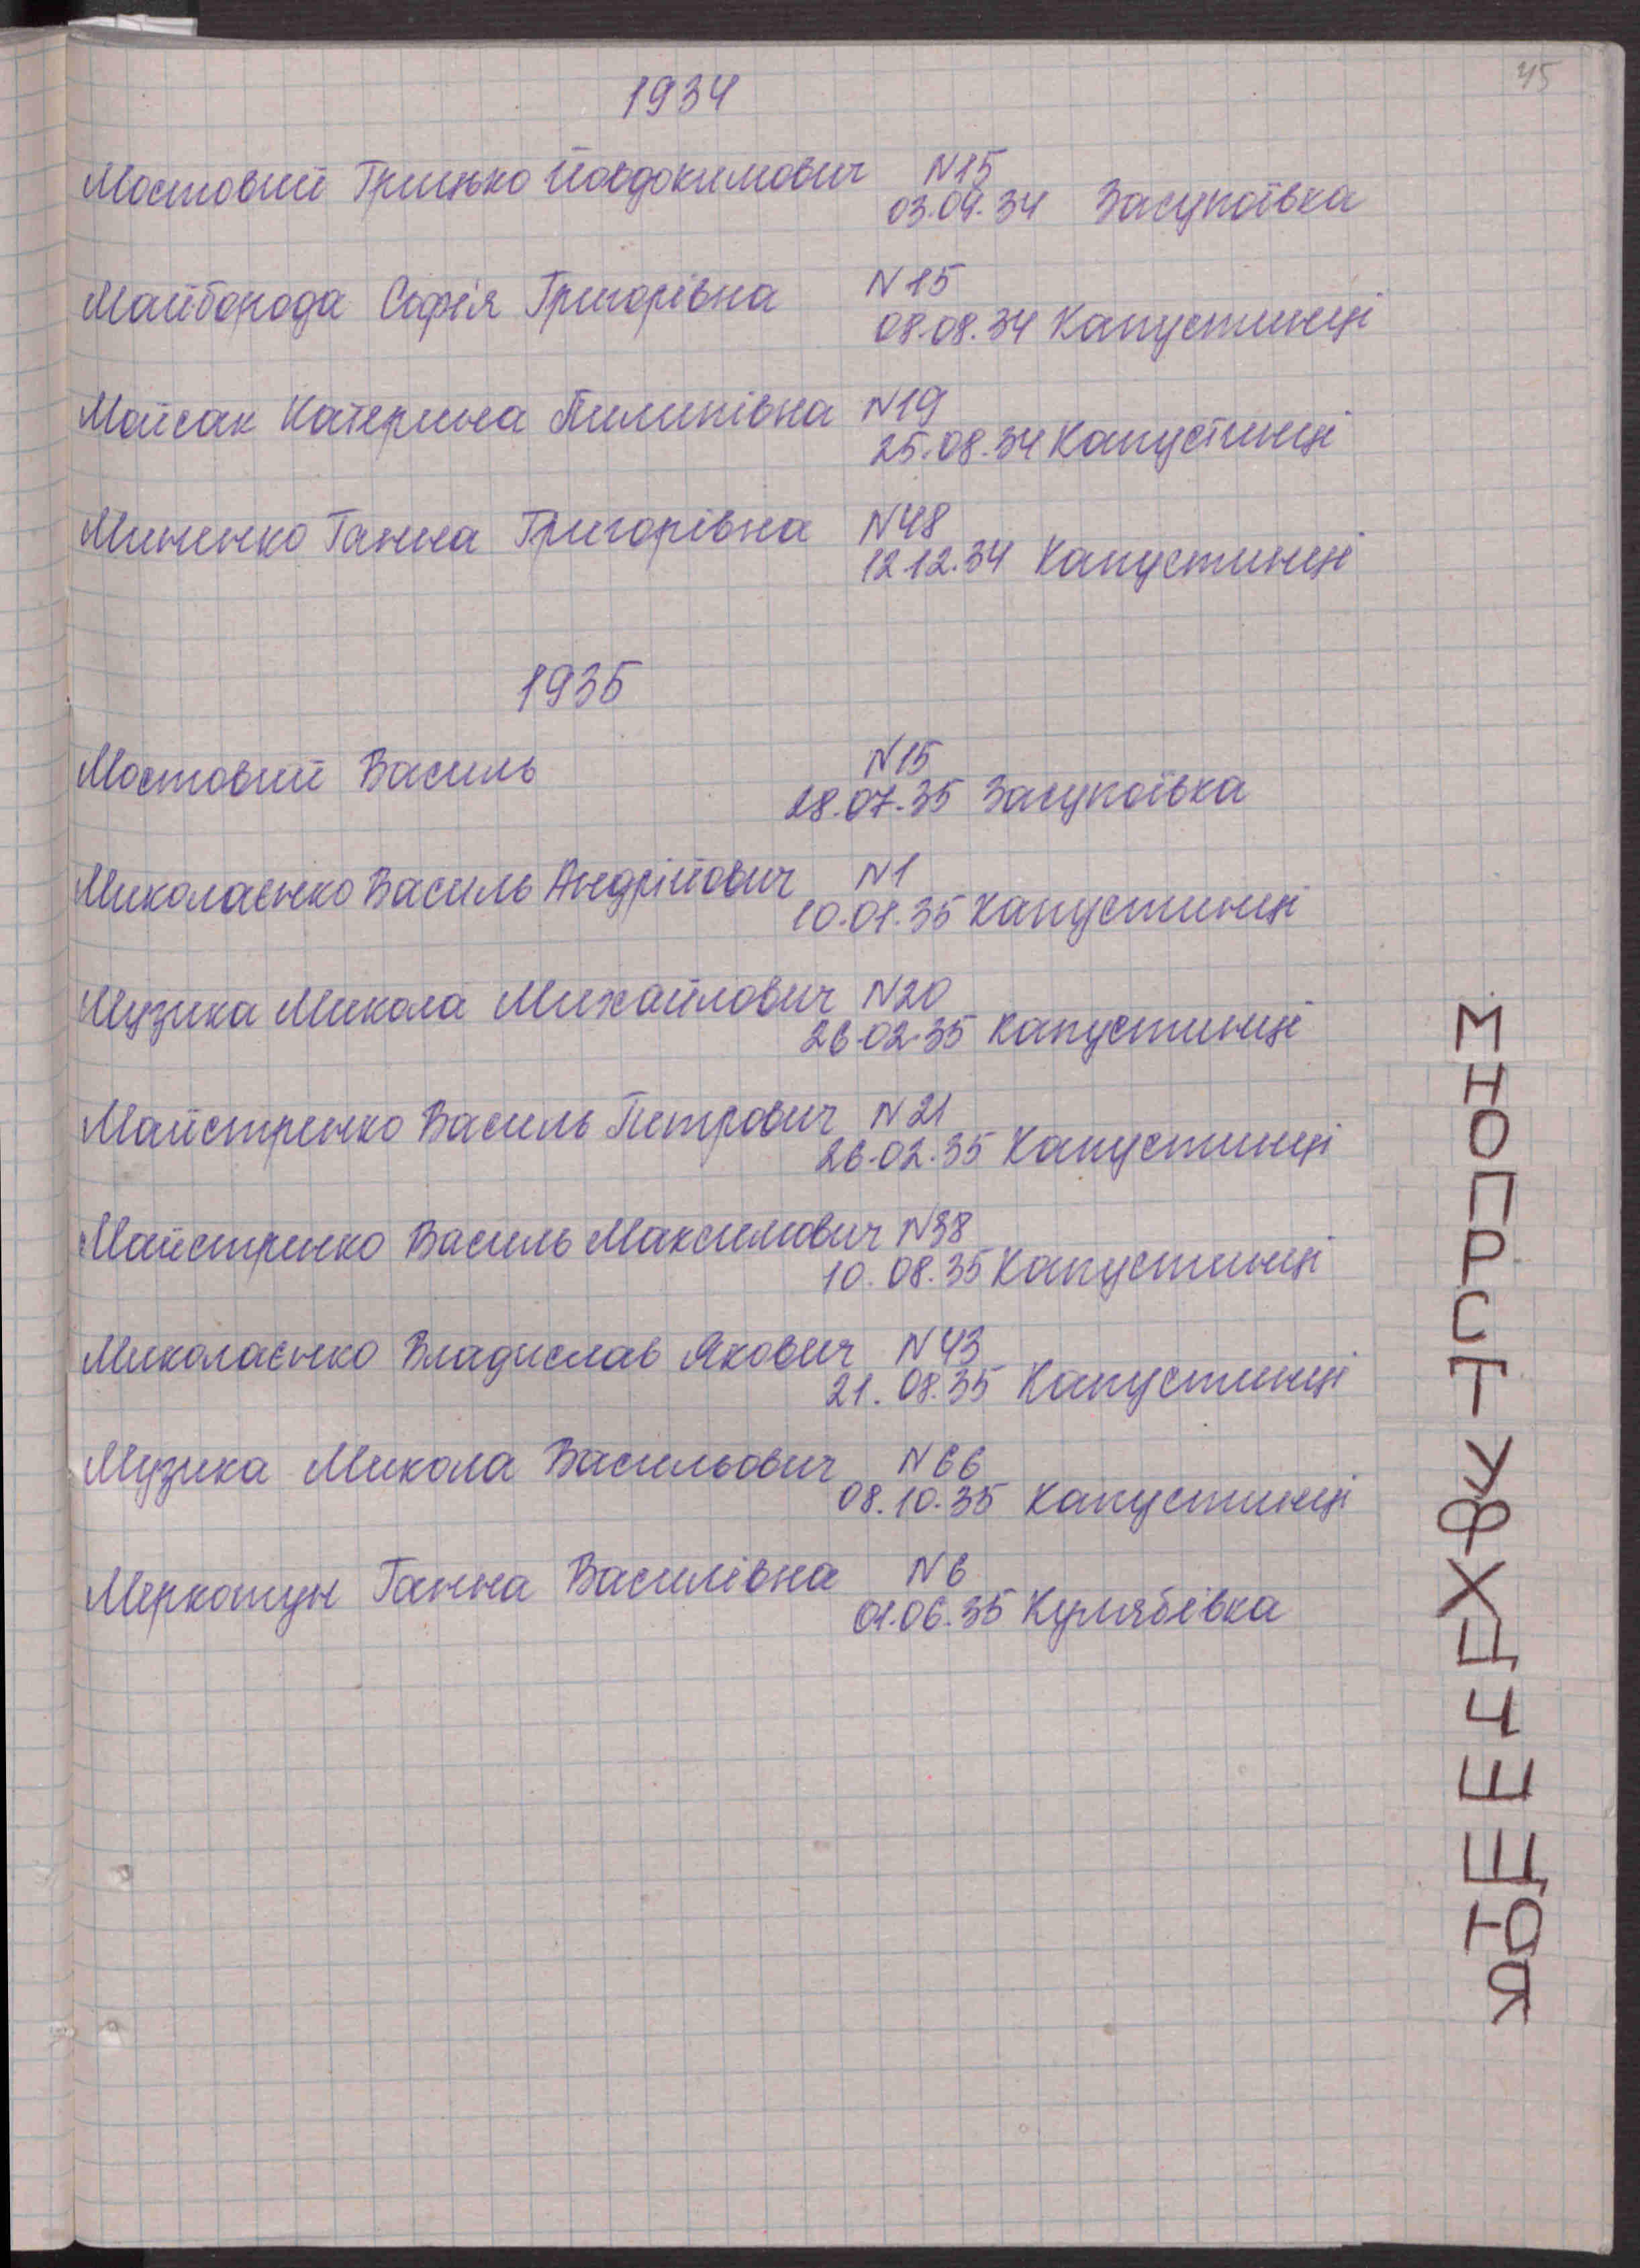 45
1934
Мостовий Грицько Йовдокимович N15
03.09.34 Засупоївка
Майборода Софія Григорівна N15
08.08.34 Капустинці
Мойсак Катерина Пилипівна N19
25.08.34 Капустинці
Миненко Ганна Григорівна N48
12.12.34 Капустинці
1935
Мостовий Василь N15
28.07.35 Засупоївка
Миколаєнко Василь Андрійович N1
10.01.35 Капустинці
Музика Микола Михайлович N20
26.02.35 Капустинці
Майстренко Василь Петрович N21
26.02.35 Капустинці
Майстренко Василь Максимович N38
10.08.35 Капустинці
Миколаєнко Владислав Якович N43
21.08.35 Капустинці
Музика Микола Васильович N66
08.10.35 Капустинці
Меркотун Ганна Василівна N6
01.06.35 Кулябівка
М
Н
О
П
Р
С
Т
У
Ф
Х
Ц
Ч
Ш
Щ
Ю
Я